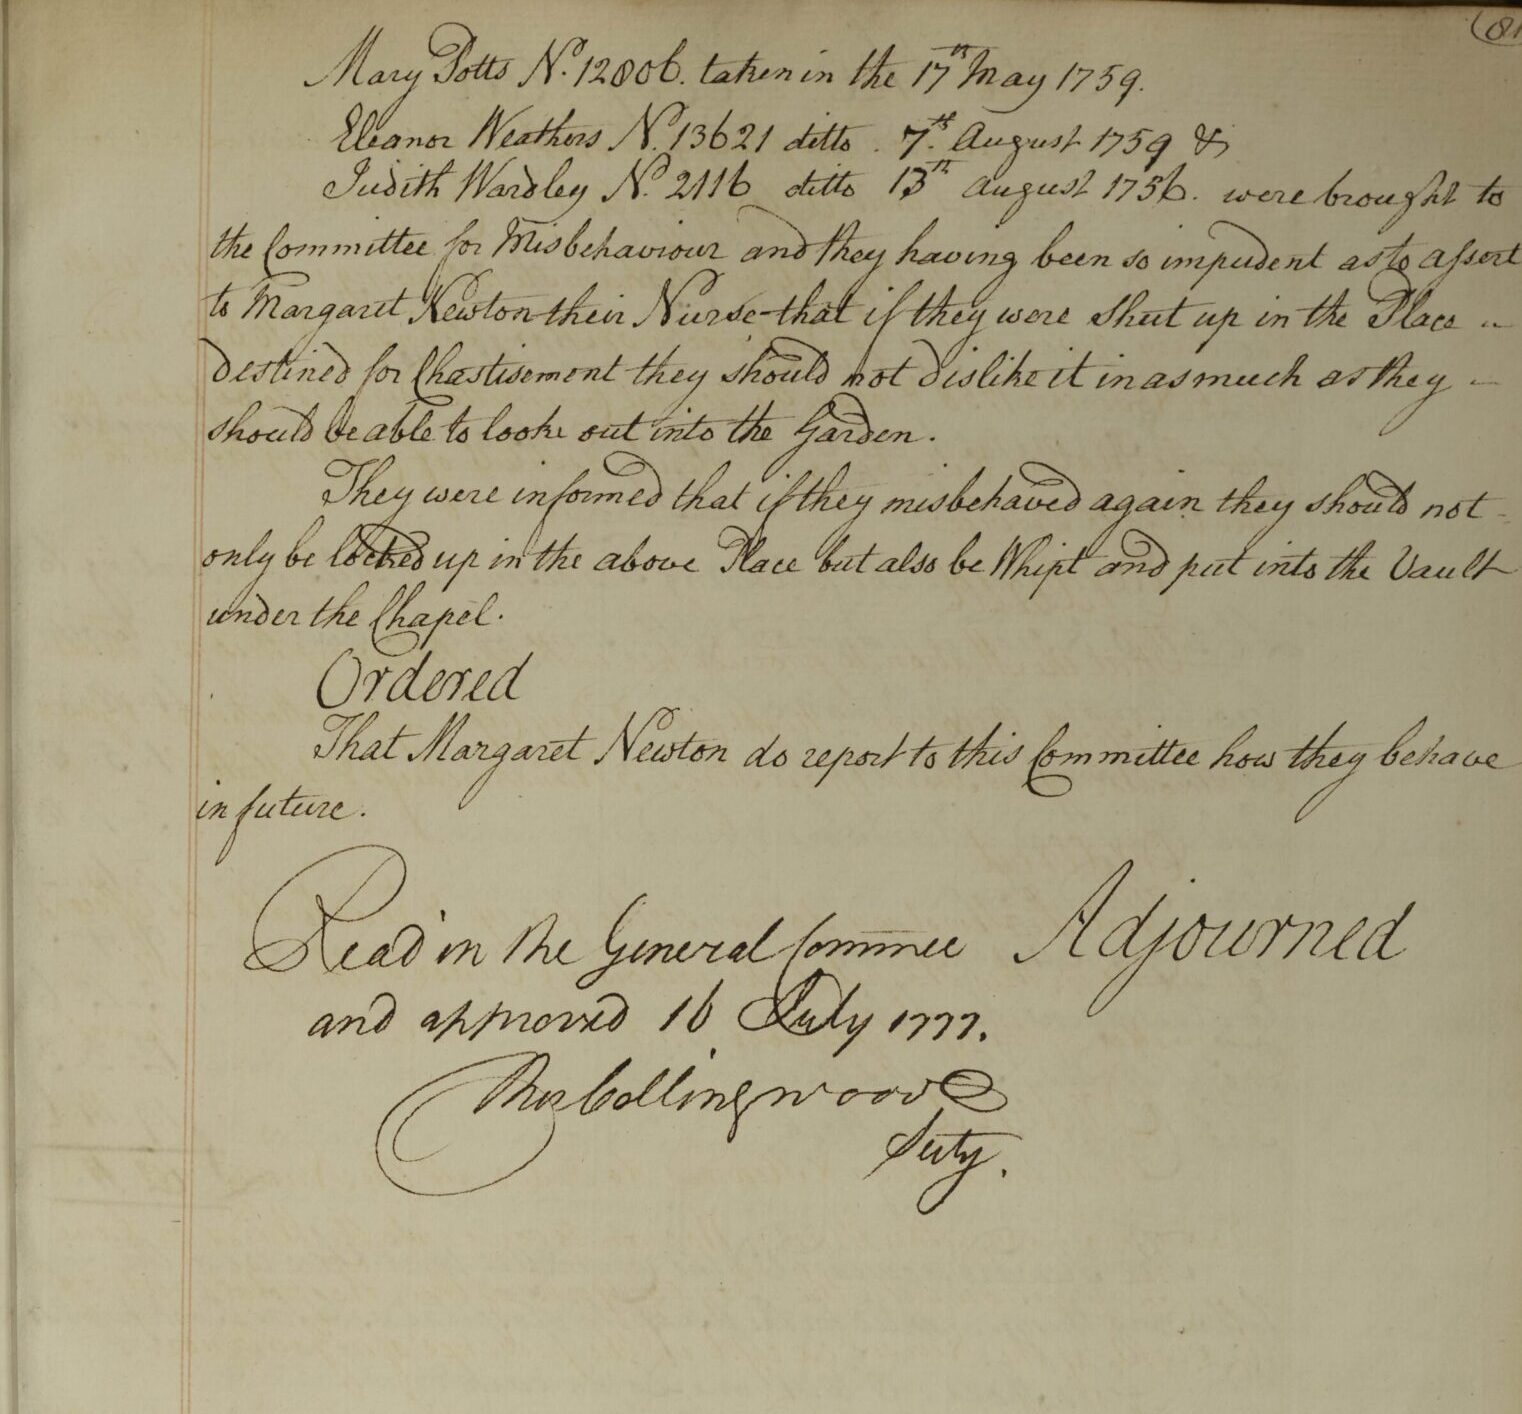 Mary Potts No. 12806. taken in the 17th May 1759.
Eleanor Weathers No. 13621 ditto . 7th. August 1759 &
Judith Wardley No. 2116 ditto 13th August 1756. were brought to
the Committee for Misbehaviour and they having been so impudent as to assert
to Margaret Newton their Nurse that if they were shut up in the Place
destined for Chastisement they should not dislike it in as much as they
should be able to look out into the Garden.
They were informed that if they misbehaved again they should not
only be locked up in the above Place but also be Whipt and put into the Vault
under the Chapel.
Ordered
That Margaret Newton do report to this Committee how they behave
in future.
Read in the General Commee Adjourned
and approved 16 July 1777.
Thos Collingwood
Secty.